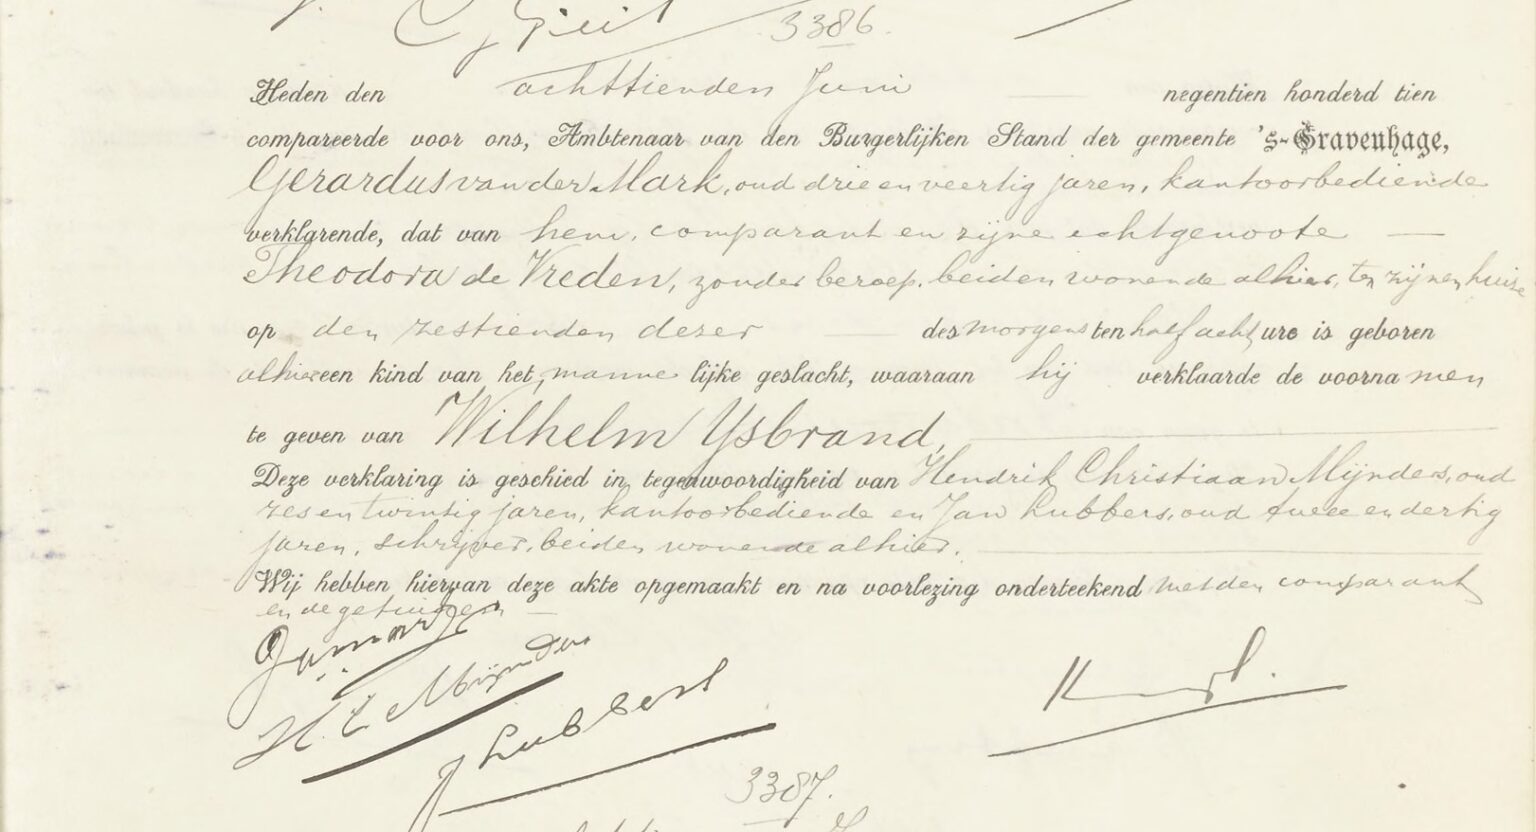 3386.
Heden den achttienden Juni negentien honderd tien
compareerde voor ons, Ambtenaar van den Burgerlijken Stand der gemeente 's-Gravenhage,
Gerardus van der Mark, oud drie en veertig jaren, kantoorbediende
verklarende, dat van hem, comparant en zijne echtgenoote
Theodora de Vreden, zonder beroep, beiden wonende alhier, ten zijnen huize
op den zestienden dezer des morgens ten half acht ure is geboren
alhier een kind van het mannelijke geslacht, waaraan hij verklaarde de voornamen
te geven van Wilhelm Ysbrand,
Deze verklaring is geschied in tegenwoordigheid van Hendrik Christiaan Mijnders, oud
zes en twintig jaren, kantoorbediende en Jan Lubbers, oud twee en dertig
jaren, schrijver, beiden wonende alhier.
Wij hebben hiervan deze akte opgemaakt en na voorlezing onderteekend met den comparant
en de getuigen
H. C. Mijnders
J Lubbers
3387.